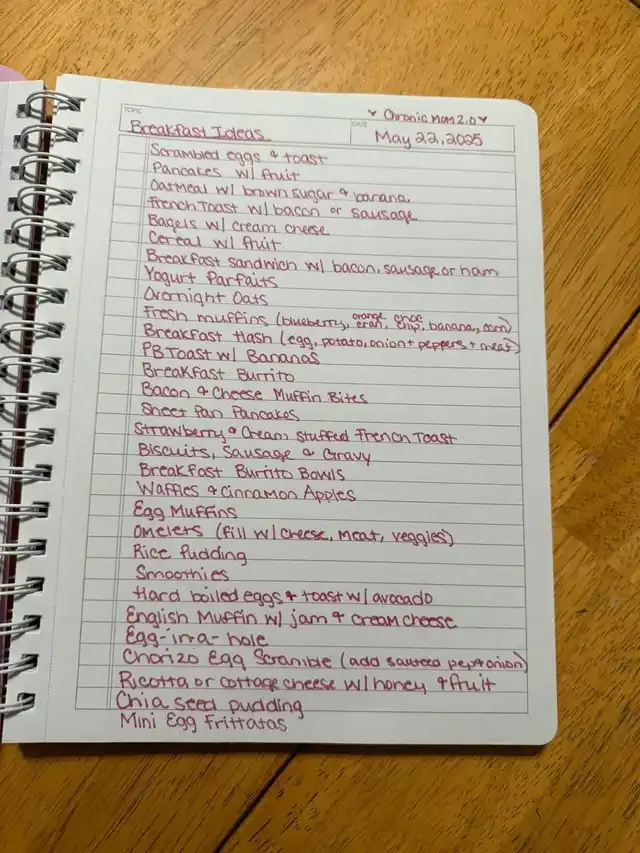 ♥ Chronic Mom 2.0 ♥
TOPIC
DATE
Breakfast Ideas
May 22, 2025
Scrambled eggs & toast
Pancakes w/ fruit
Oatmeal w/ brown sugar & banana
French Toast w/ bacon or sausage
Bagels w/ cream cheese
Cereal w/ fruit
Breakfast sandwich w/ bacon, sausage or ham
Yogurt Parfaits
Overnight Oats
Fresh muffins (blueberry, orange cran, choc chip, banana, corn)
Breakfast Hash (egg, potato, onion + peppers + meat)
PB Toast w/ Bananas
Breakfast Burrito
Bacon & Cheese Muffin Bites
Sheet Pan Pancakes
Strawberry & Cream stuffed French Toast
Biscuits, Sausage & Gravy
Breakfast Burrito Bowls
Waffles & Cinnamon Apples
Egg Muffins
Omelets (fill w/ cheese, meat, veggies)
Rice Pudding
Smoothies
Hard boiled eggs & toast w/ avocado
English Muffin w/ jam & cream cheese
Egg-in-a-hole
Chorizo Egg Scramble (add sauteed pep + onion)
Ricotta or cottage cheese w/ honey & fruit
Chia seed pudding
Mini Egg Frittatas